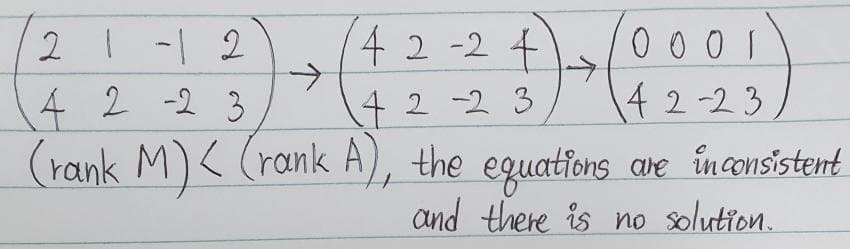 2 1 -1 2 → 4 2 -2 4 → 0 0 0 1
4 2 -2 3 4 2 -2 3 4 2 -2 3
(rank M) < (rank A), the equations are inconsistent
and there is no solution.